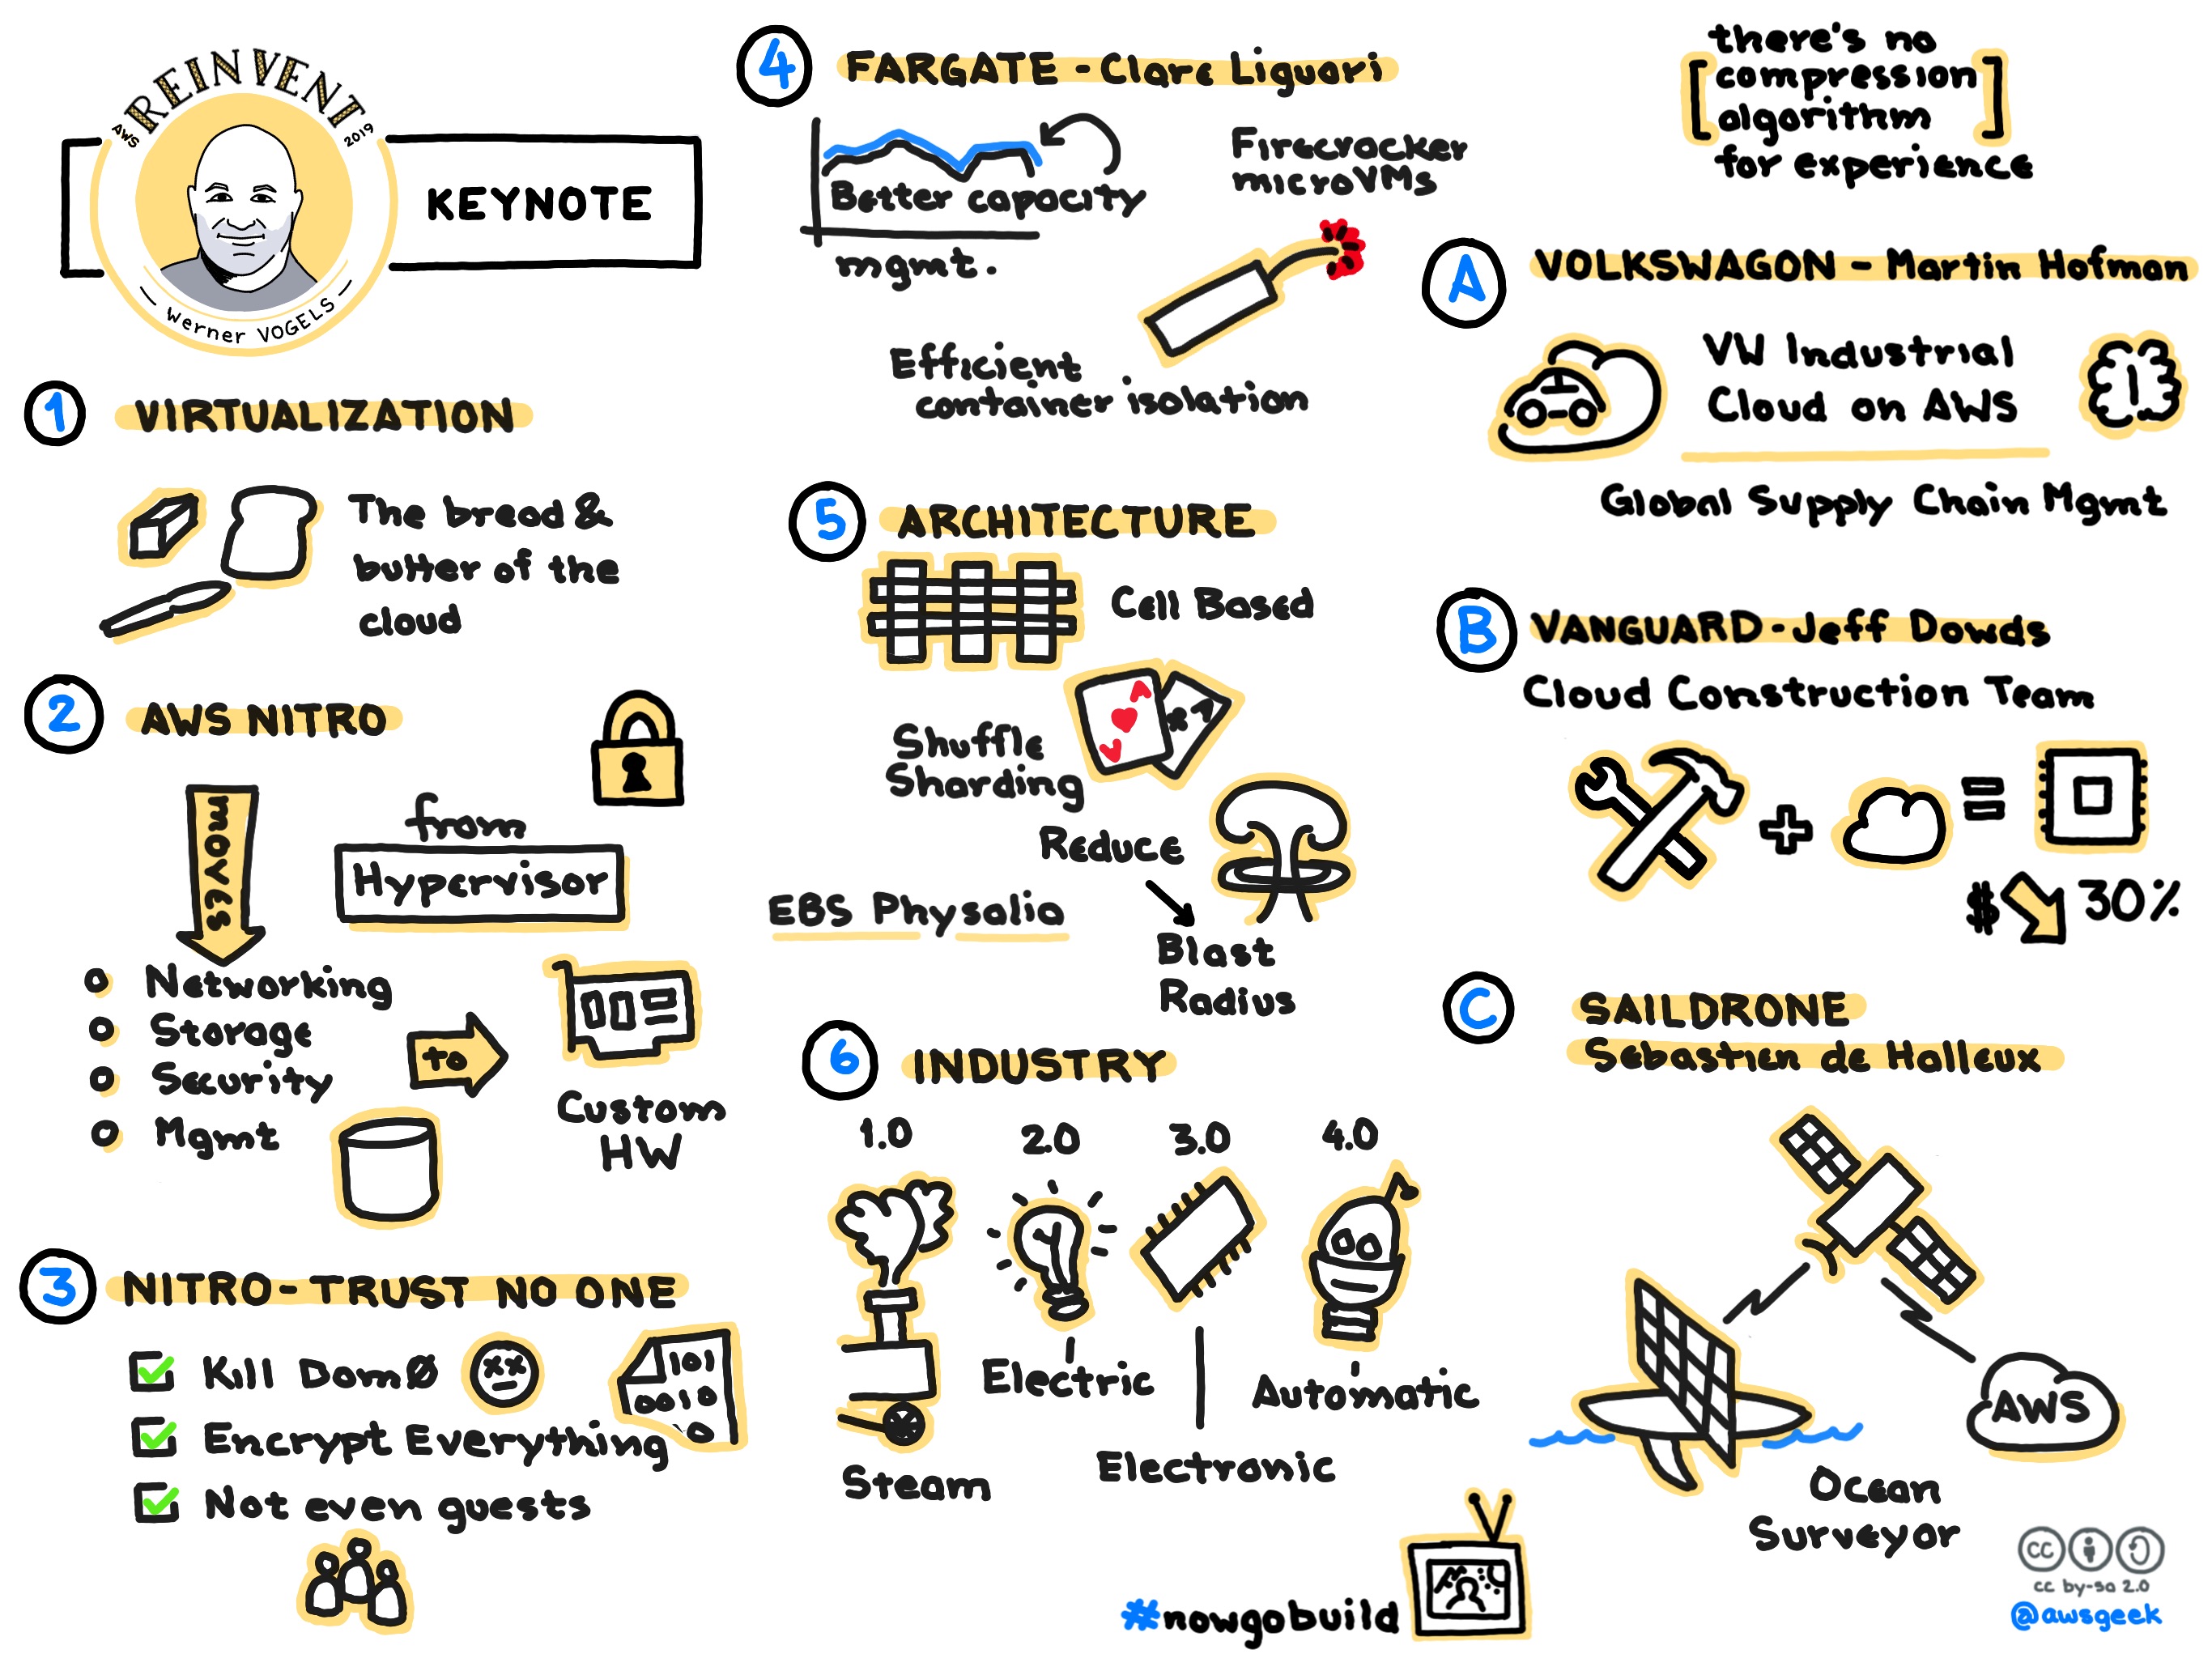 AWS REINVENT 2019
KEYNOTE
Werner VOGELS
1 VIRTUALIZATION
The bread &
butter of the
cloud
2 AWS NITRO
moves
from
Hypervisor
Networking
Storage
Security
Mgmt
to
Custom
HW
3 NITRO - TRUST NO ONE
Kill Dom0
Encrypt Everything
Not even guests
101
0010
0
4 FARGATE - Clare Liguori
Better capacity
mgmt.
Firecracker
microVMs
Efficient
container isolation
5 ARCHITECTURE
Cell Based
Shuffle
Sharding
A
7
Reduce
Blast
Radius
EBS Physalia
6 INDUSTRY
1.0 2.0 3.0 4.0
Steam
Electric
Electronic
Automatic
#nowgobuild
there's no
[compression
algorithm]
for experience
A VOLKSWAGON - Martin Hofman
VW Industrial
Cloud on AWS
Global Supply Chain Mgmt
B VANGUARD - Jeff Dowds
Cloud Construction Team
+ =
$ 30%
C SAILDRONE
Sebastien de Halleux
AWS
Ocean
Surveyor
cc
cc by-sa 2.0
@awsgeek